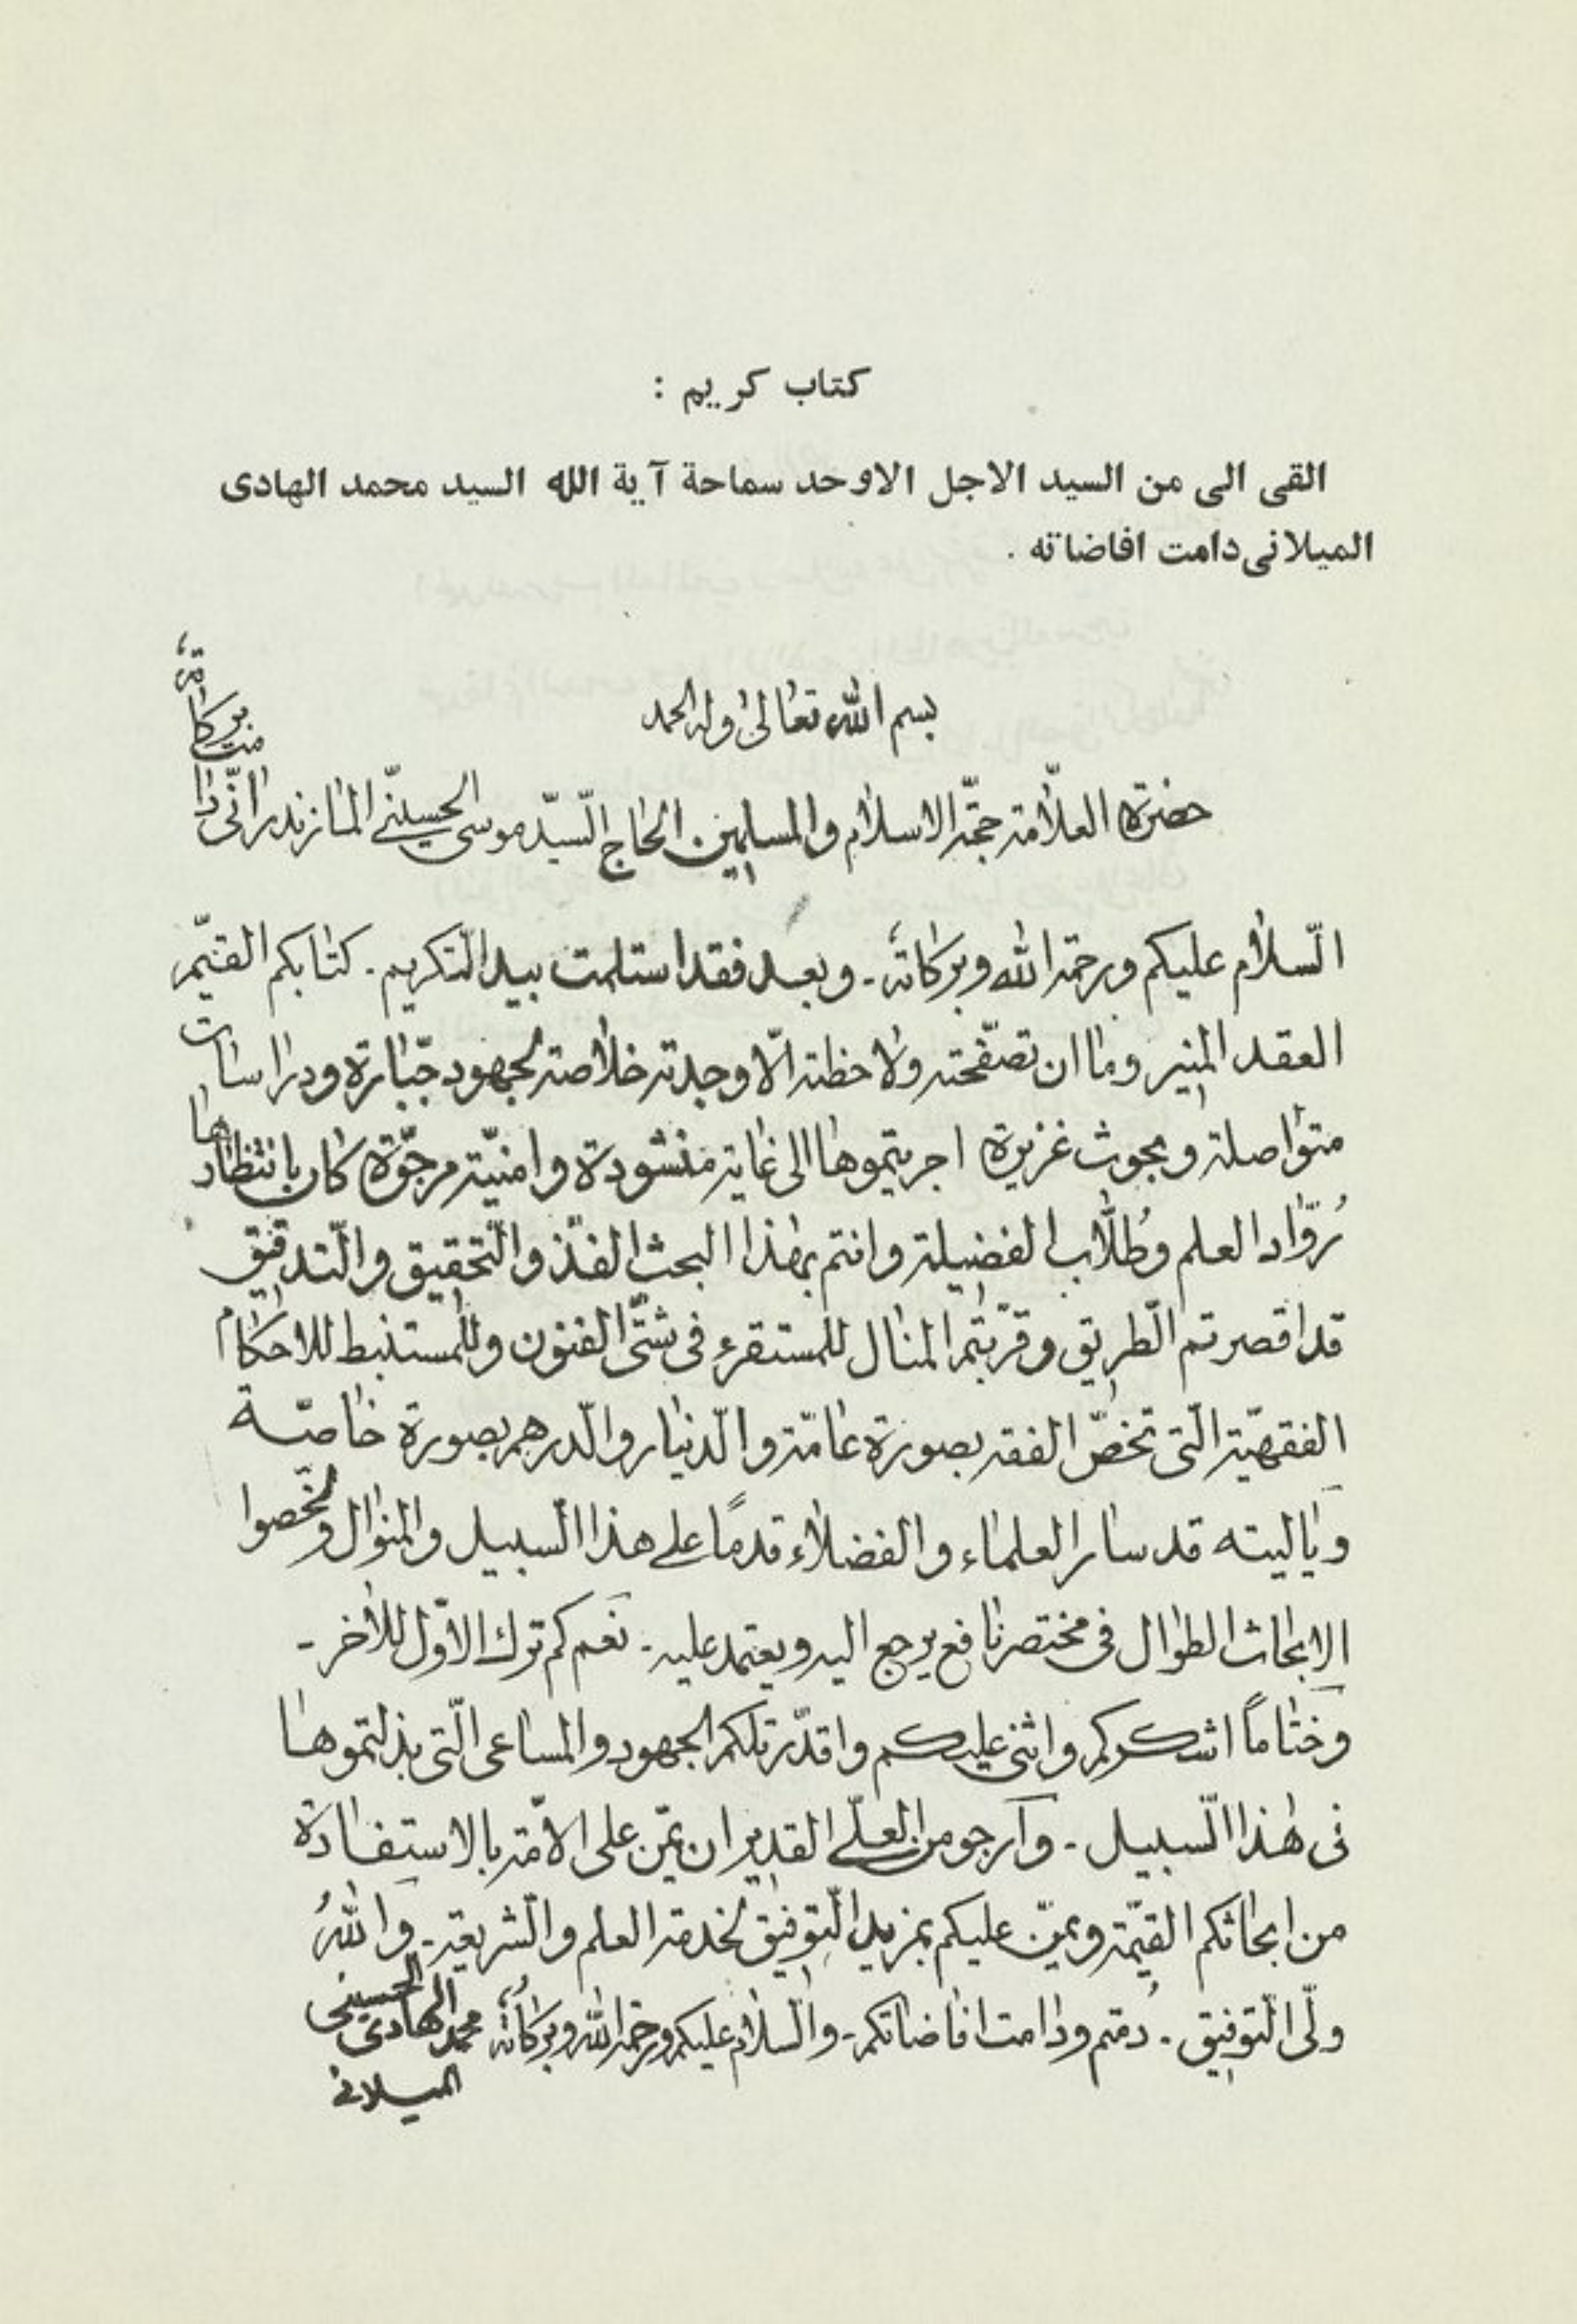 كتاب كريم :
القى الى من السيد الاجل الاوحد سماحة آية الله السيد محمد الهادى
الميلانى دامت افاضاته .
بسم الله تعالى وله الحمد
حضرة العلّامة حجّة الاسلام والمسلمين الحاج السّيّد موسى الحسينّي المازندرانّي دامت بركاته
السّلام عليكم ورحمة الله وبركاته - وبعد فقد استلمت بيد التّكريم - كتابكم القيّم
العقد المنير وما ان تصفّحته ولاحظته الّا وجدته خلاصة لجهود جبّارة ودراسات
متواصلة وبحوث غزيرة اجريتموها الى غاية منشودة وامنيّة مرجّوة كان بانتظارها
رُوّاد العلم وطُلّاب الفضيلة وانتم بهٰذا البحث الفذّ والتّحقيق والتّدقيق
قد اقصرتم الطّريق وقرّبتم المنال للمستقرء فى شتّى الفنون وللمستنبط للاحكام
الفقهيّة الّتى تخصّ الفقه بصورة عامّة والدّينار والدّرهم بصورة خاصّة
وياليته قد سار العلماء والفضلاء قدمًا على هذا السّبيل والمنوال ولخّصوا
الابحاث الطوال فى مختصر نافع يرجع اليه ويعتمد عليه - نعم كم ترك الاوّل للأخر -
وختامًا اشكركم واثنى عليكم واقدّر تلكم الجهود والمساعى الّتى بذلتموها
فى هٰذا السّبيل - وارجو من العلّي القدير ان يمّن على الامّة بالاستفادة
من ابحاثكم القيّمة ويمنّ عليكم بمزيد التّوفيق لخدمة العلم والشّريعة - واللهُ
ولّى التّوفيق - دُمتم ودامت افاضاتكم - والسّلام عليكم ورحمة الله وبركاته محمد الهادى الحسينى
الميلانى